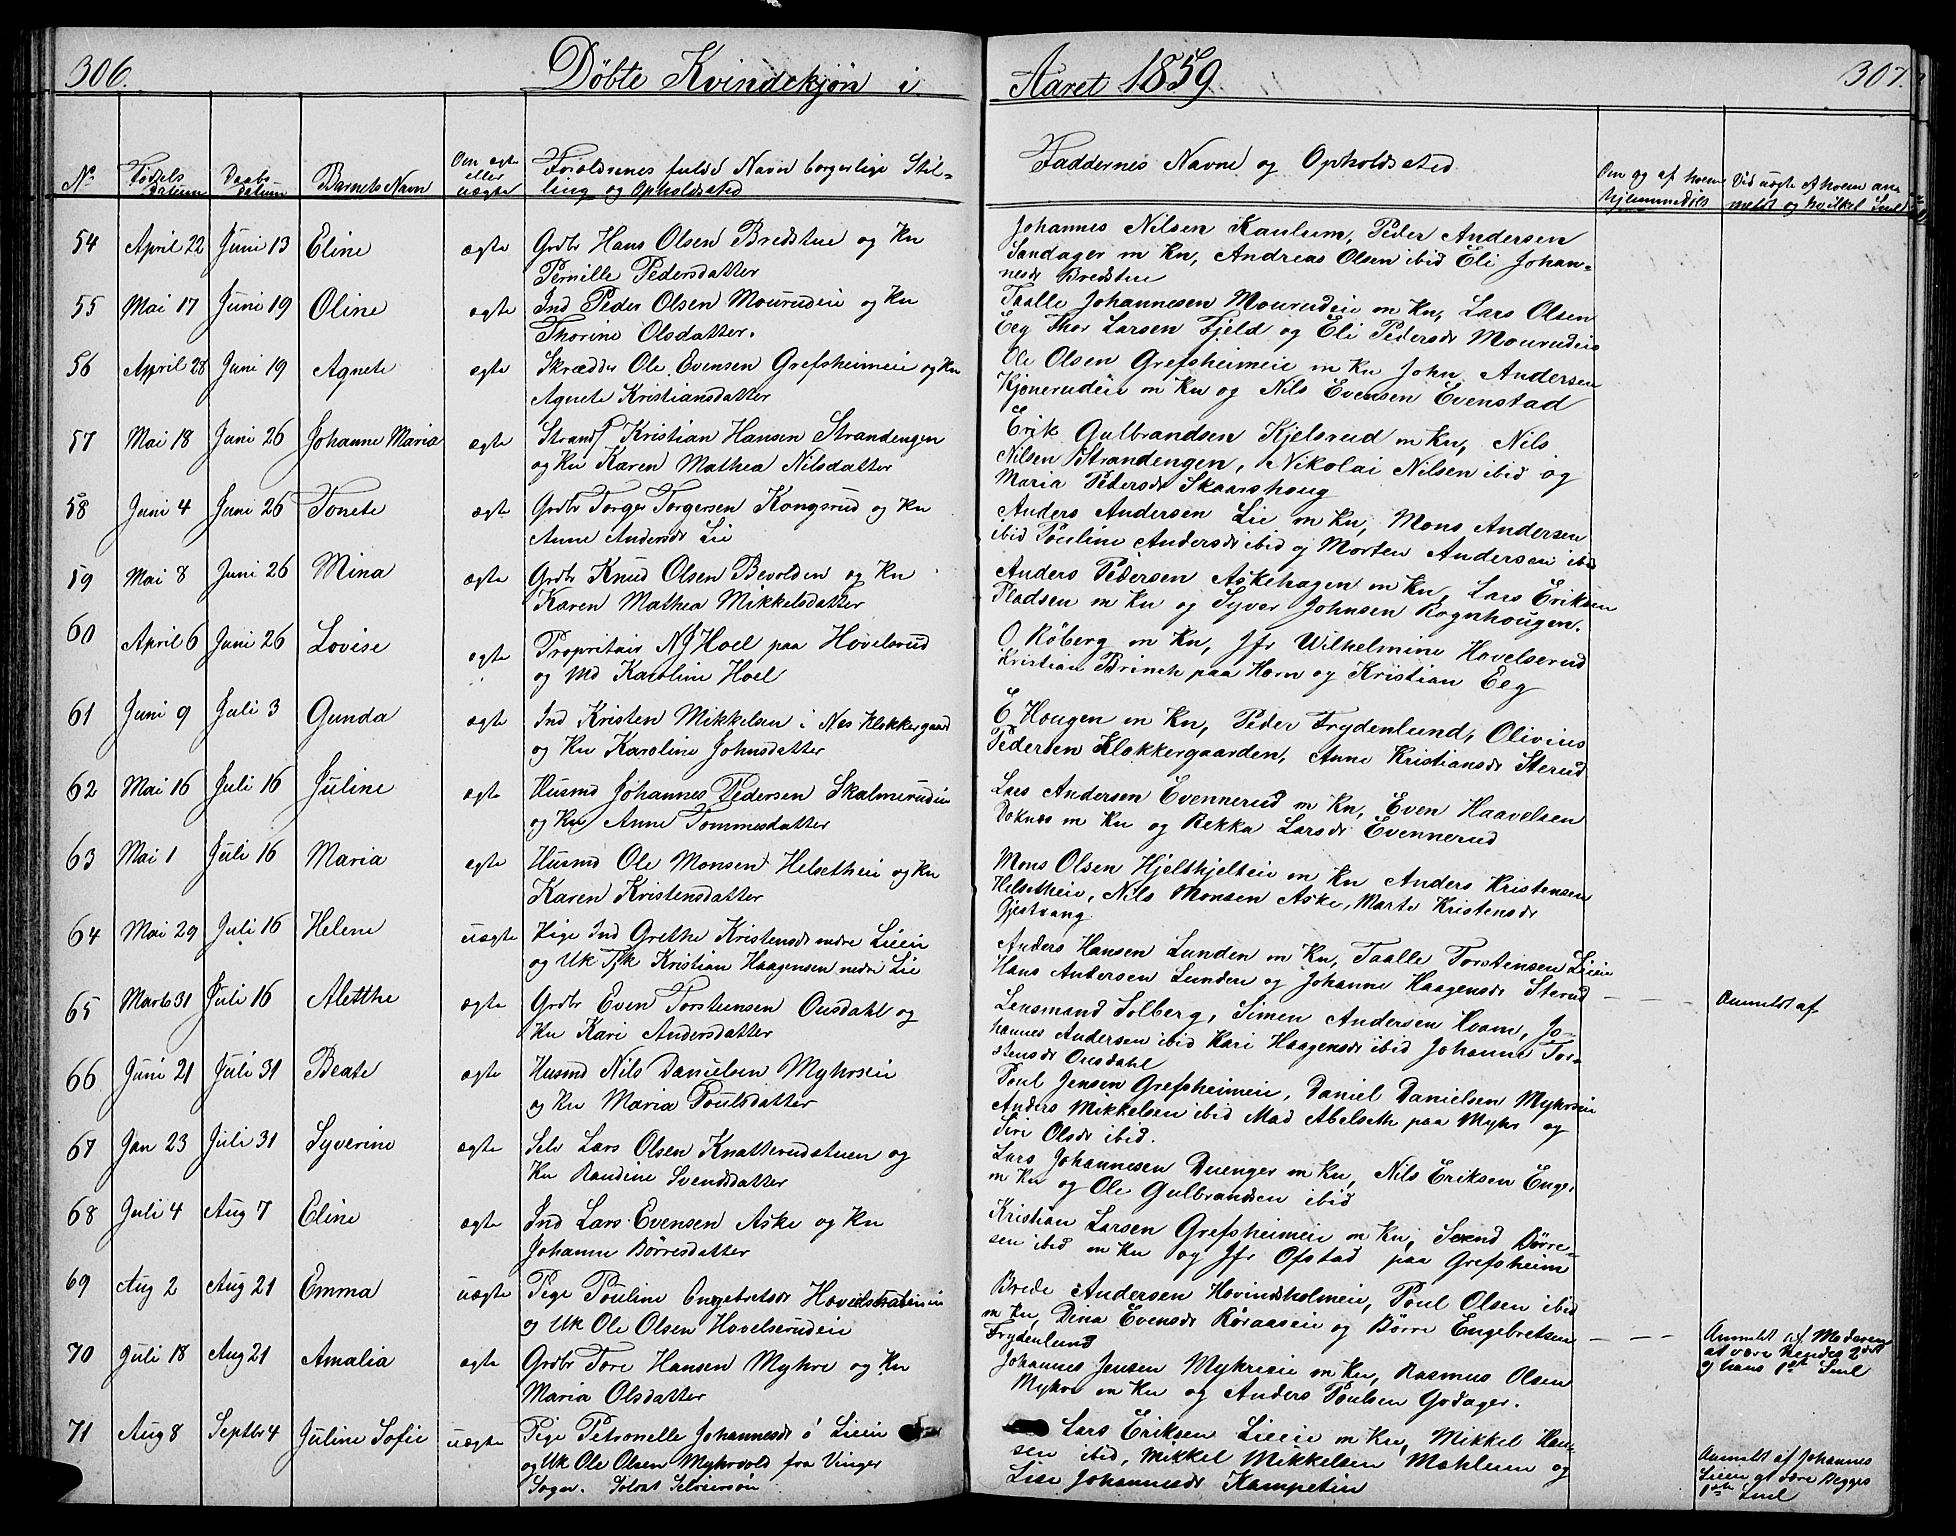 306.
Døbte Kvindekjøn i
Aaret 1859
307.
No
Fødsels Datum
Daabs Datum
Barnets Navn
Om ægte eller uægte
Forældrenes fulde Navn borgerlige Stilling og Opholdssted
Faddernes Navne og Opholdssted
Om og af hvem hjemmedøbt
Vid uægte af hvem anmeldt og hvilket Leie
54 April 22 Juni 13 Eline ægte Grdbr Hans Olsen Bredstue og Kn
Pernille Pedersdatter
Johannes Nilsen Kaulum, Peder Andersen
Sandager m Kn, Andreas Olsen ibid Eli Johan-
nesdr Bredstue
55 Mai 17 Juni 19 Oline ægte Ind Peder Olsen Mourudeie og Kn
Thorine Olsdatter.
Taalle Johannesen Mourudeie m Kn, Lars Olsen
Eeg Thor Larsen Fjeld og Eli Pedersdr Mourudeie
56 April 28 Juni 19 Agnete ægte Skrædder Ole Evensen Grefsheimeie og Kn
Agnete Kristiansdatter
Ole Olsen Grefsheimeie m Kn John Andersen
Kjonerudeie m Kn og Nils Evensen Evenstad
57 Mai 18 Juni 26 Johanne Maria ægte Strandf Kristian Hansen Strandengen
og Kn Karen Mathea Nilsdatter
Erik Gulbrandsen Kjelsrud m Kn, Nils
Nilsen Strandengen, Nikolai Nilsen ibid og
Maria Pedersdr Skaarshoug
58 Juni 4 Juni 26 Tonete ægte Grdbr Torger Torgersen Kongsrud og Kn
Anne Andersdr Lie
Anders Andersen Lie m Kn, Mons Andersen
ibid Pouline Andersdr ibid og Morten Andersen ibid
59 Mai 8 Juni 26 Mina ægte Grdbr Knud Olsen Bevolden og Kn
Karen Mathea Mikkelsdatter
Anders Pedersen Askehagen m Kn, Lars Eriksen
Pladsen m Kn og Syver Johnsen Rognhougen.
60 April 6 Juni 26 Lovise ægte Propritair N J Hoel paa Hovelsrud
og Md Karoline Hoel
O. Röberg m Kn, Jfr Wilhelmine Hovelserud
Kristian Brinch paa Horn og Kristian Eeg
61 Juni 9 Juli 3 Gunda ægte Ind Kristen Mikkelsen i Nes Klokkergaard
og Kn Karoline Johnsdatter
E Hougen m Kn, Peder Frydenlund, Olivius
Pedersen Klokkergaarden, Anne Kristiansdr Sterud
62 Mai 16 Juli 16 Juline ægte Husmd Johannes Pedersen Skalmerudeie
og Kn Anne Tommesdatter
Lars Andersen Evennerud m Kn, Even Haavelsen
Doknæs m Kn og Rekka Larsdr Evennerud
63 Mai 1 Juli 16 Maria ægte Husmd Ole Monsen Helsetheie og Kn
Karen Kristensdatter
Mons Olsen Hjelthjelteie m Kn Anders Kristensen
Helsetheie, Nils Monsen Aske, Marte Kristensdr
Gjestvang
64 Mai 29 Juli 16 Helene uægte Pige Ind Grethe Kristensdr nedre Lieeie
og Uk Tjk Kristian Haagensen nedre Lie
Anders Hansen Lunden m Kn, Taalle Torstensen Lieeie
Hans Andersen Lunden og Johanne Haagensdr Sterud
Anmeldt af
65 Marts 31 Juli 16 Alethe ægte Grdbr Even Torstensen Ousdahl og
Kn Kari Andersdatter
Lensmand Solberg, Simen Andersen Hvam, Jo-
hannes Andersen ibid Kari Haagensdr ibid Johanne Tor-
stensdr Ousdahl
66 Juni 21 Juli 31 Beate ægte Husmd Nils Danielsen Myhrseie
og Kn Maria Poulsdatter
Poul Jensen Grefsheimeie, Daniel Danielsen Myhrseie
Anders Mikkelsen ibid Mad Abelseth paa Myhr og
Siri Olsdr ibid.
67 Jan 23 Juli 31 Syverine ægte Selv Lars Olsen Knatterudstuen og
Kn Randine Svendsdatter
Lars Johannesen Duenger m Kn, Nils Eriksen Enger
m Kn og Ole Gulbrandsen ibid
68 Juli 4 Aug 7 Eline ægte Ind Lars Evensen Aske og Kn
Johanne Børresdatter
Kristian Larsen Grefsheimeie m Kn, Svend Børre-
sen ibid m Kn og Jfr Ofstad paa Grefsheim
69 Aug 2 Aug 21 Emma uægte Pige Pouline Engebretsdr
og Uk Ole Olsen Hovelserudeie
Brede Andersen Hovindsholmeie, Poul Olsen ibid
m Kn, Dina Evensdr Röraaseie og Børre Engebretsen
Frydenlund
Anmeldt af Moderen
at være hendes 2det
og hans 1st Leie
70 Juli 18 Aug 21 Amalia ægte Grdbr Tore Hansen Myhre og Kn
Maria Olsdatter
Johannes Jensen Myhreeie m Kn, Rasmus Olsen
Myhre m Kn og Anders Poulsen Godager.
71 Aug 8 Septbr 4 Juline Sofie uægte Pige Petronelle Johannesdr ö Lieeie
og Uk Ole Olsen Myhrvold fra Vinger
Sogn.
Lars Eriksen Lieeie m Kn, Mikkel Han-
sen ibid, Mikkel Mikkelsen Mæhlum og
Lise Johannesdr Kampetin
Anmeldt af Johannes
Lieeie at være Begges
1ste Leie